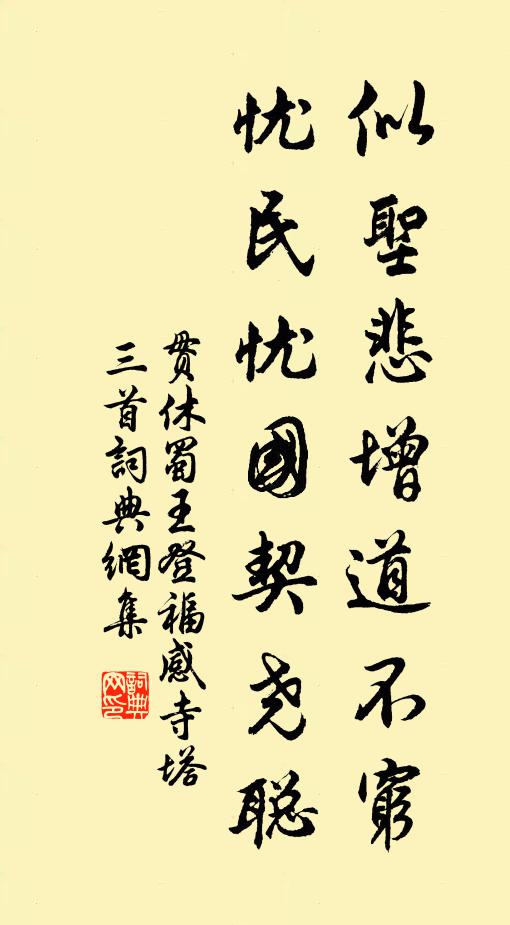 似聖悲增道不窮
忧民忧國契尧聪
贯休蜀王登福感寺塔
三首詞典網集
詞典
网印